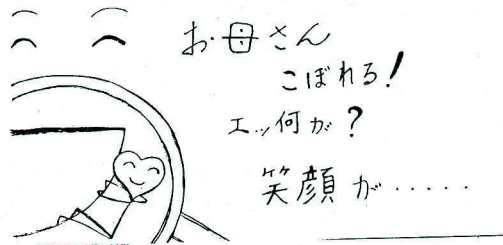 お母さん
こぼれる!
エッ何が?
笑顔が.....